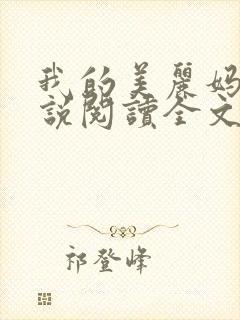 我的美麗媽
說閱讀全文
祁登峰